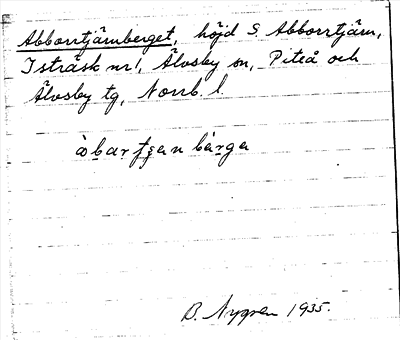 Abborrtjärnberget, höjd S. Abborrtjärn,
Isträsk nr 1, Älvsby sn, Piteå och
Älvsby tg, Norrb. l.
B. Nygren 1935.